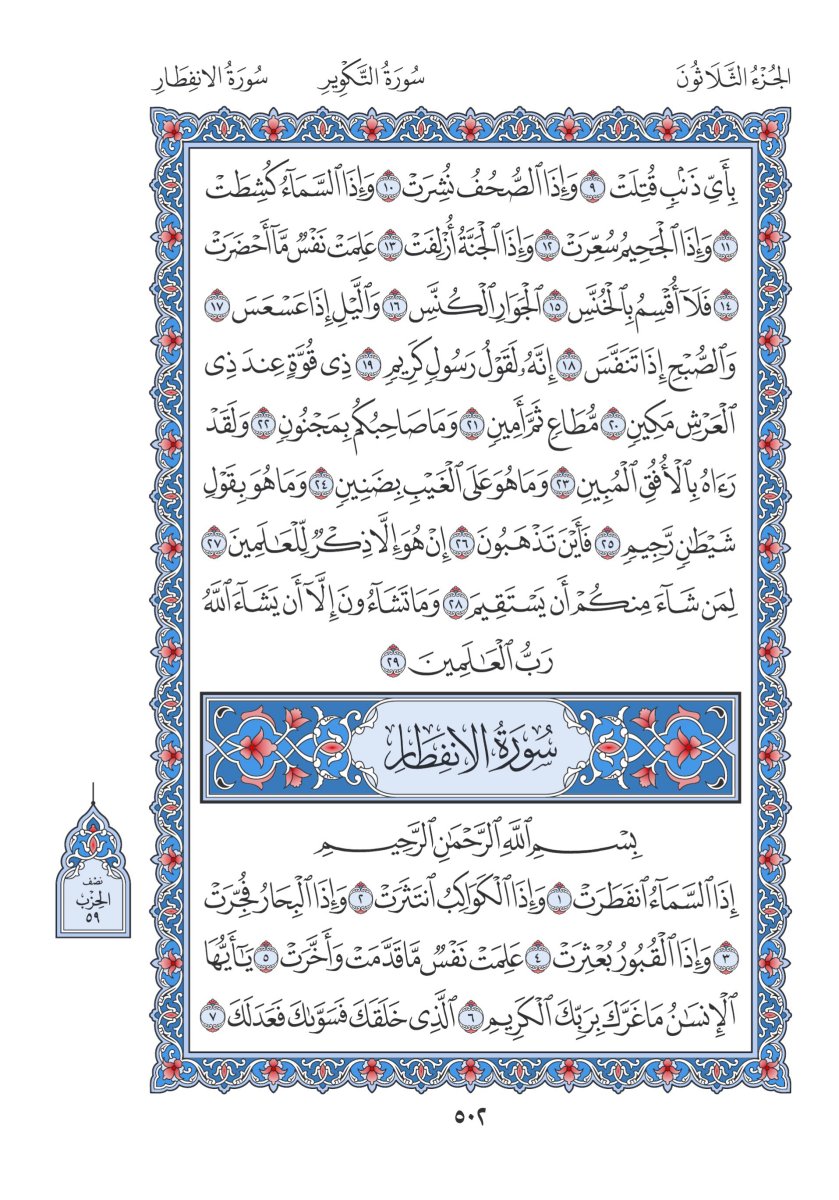 الجُزْءُ الثَّلَاثُونَ سُورَةُ التَّكْوِيرِ سُورَةُ الانفِطَارِ
بِأَيِّ ذَنۢبٍ قُتِلَتۡ ٩ وَإِذَا ٱلصُّحُفُ نُشِرَتۡ ١٠ وَإِذَا ٱلسَّمَآءُ كُشِطَتۡ
١١ وَإِذَا ٱلۡجَحِيمُ سُعِّرَتۡ ١٢ وَإِذَا ٱلۡجَنَّةُ أُزۡلِفَتۡ ١٣ عَلِمَتۡ نَفۡسٞ مَّآ أَحۡضَرَتۡ
١٤ فَلَآ أُقۡسِمُ بِٱلۡخُنَّسِ ١٥ ٱلۡجَوَارِ ٱلۡكُنَّسِ ١٦ وَٱلَّيۡلِ إِذَا عَسۡعَسَ ١٧
وَٱلصُّبۡحِ إِذَا تَنَفَّسَ ١٨ إِنَّهُۥ لَقَوۡلُ رَسُولٖ كَرِيمٖ ١٩ ذِي قُوَّةٍ عِندَ ذِي
ٱلۡعَرۡشِ مَكِينٖ ٢٠ مُّطَاعٖ ثَمَّ أَمِينٖ ٢١ وَمَا صَاحِبُكُم بِمَجۡنُونٖ ٢٢ وَلَقَدۡ
رَءَاهُ بِٱلۡأُفُقِ ٱلۡمُبِينِ ٢٣ وَمَا هُوَ عَلَى ٱلۡغَيۡبِ بِضَنِينٖ ٢٤ وَمَا هُوَ بِقَوۡلِ
شَيۡطَٰنٖ رَّجِيمٖ ٢٥ فَأَيۡنَ تَذۡهَبُونَ ٢٦ إِنۡ هُوَ إِلَّا ذِكۡرٞ لِّلۡعَٰلَمِينَ ٢٧
لِمَن شَآءَ مِنكُمۡ أَن يَسۡتَقِيمَ ٢٨ وَمَا تَشَآءُونَ إِلَّآ أَن يَشَآءَ ٱللَّهُ
رَبُّ ٱلۡعَٰلَمِينَ ٢٩
سُورَةُ الانفِطَارِ
بِسۡمِ ٱللَّهِ ٱلرَّحۡمَٰنِ ٱلرَّحِيمِ
إِذَا ٱلسَّمَآءُ ٱنفَطَرَتۡ ١ وَإِذَا ٱلۡكَوَاكِبُ ٱنتَثَرَتۡ ٢ وَإِذَا ٱلۡبِحَارُ فُجِّرَتۡ
٣ وَإِذَا ٱلۡقُبُورُ بُعۡثِرَتۡ ٤ عَلِمَتۡ نَفۡسٞ مَّا قَدَّمَتۡ وَأَخَّرَتۡ ٥ يَٰٓأَيُّهَا
ٱلۡإِنسَٰنُ مَا غَرَّكَ بِرَبِّكَ ٱلۡكَرِيمِ ٦ ٱلَّذِي خَلَقَكَ فَسَوَّىٰكَ فَعَدَلَكَ ٧
نصف
الحِزْب
٥٩
٥٠٢